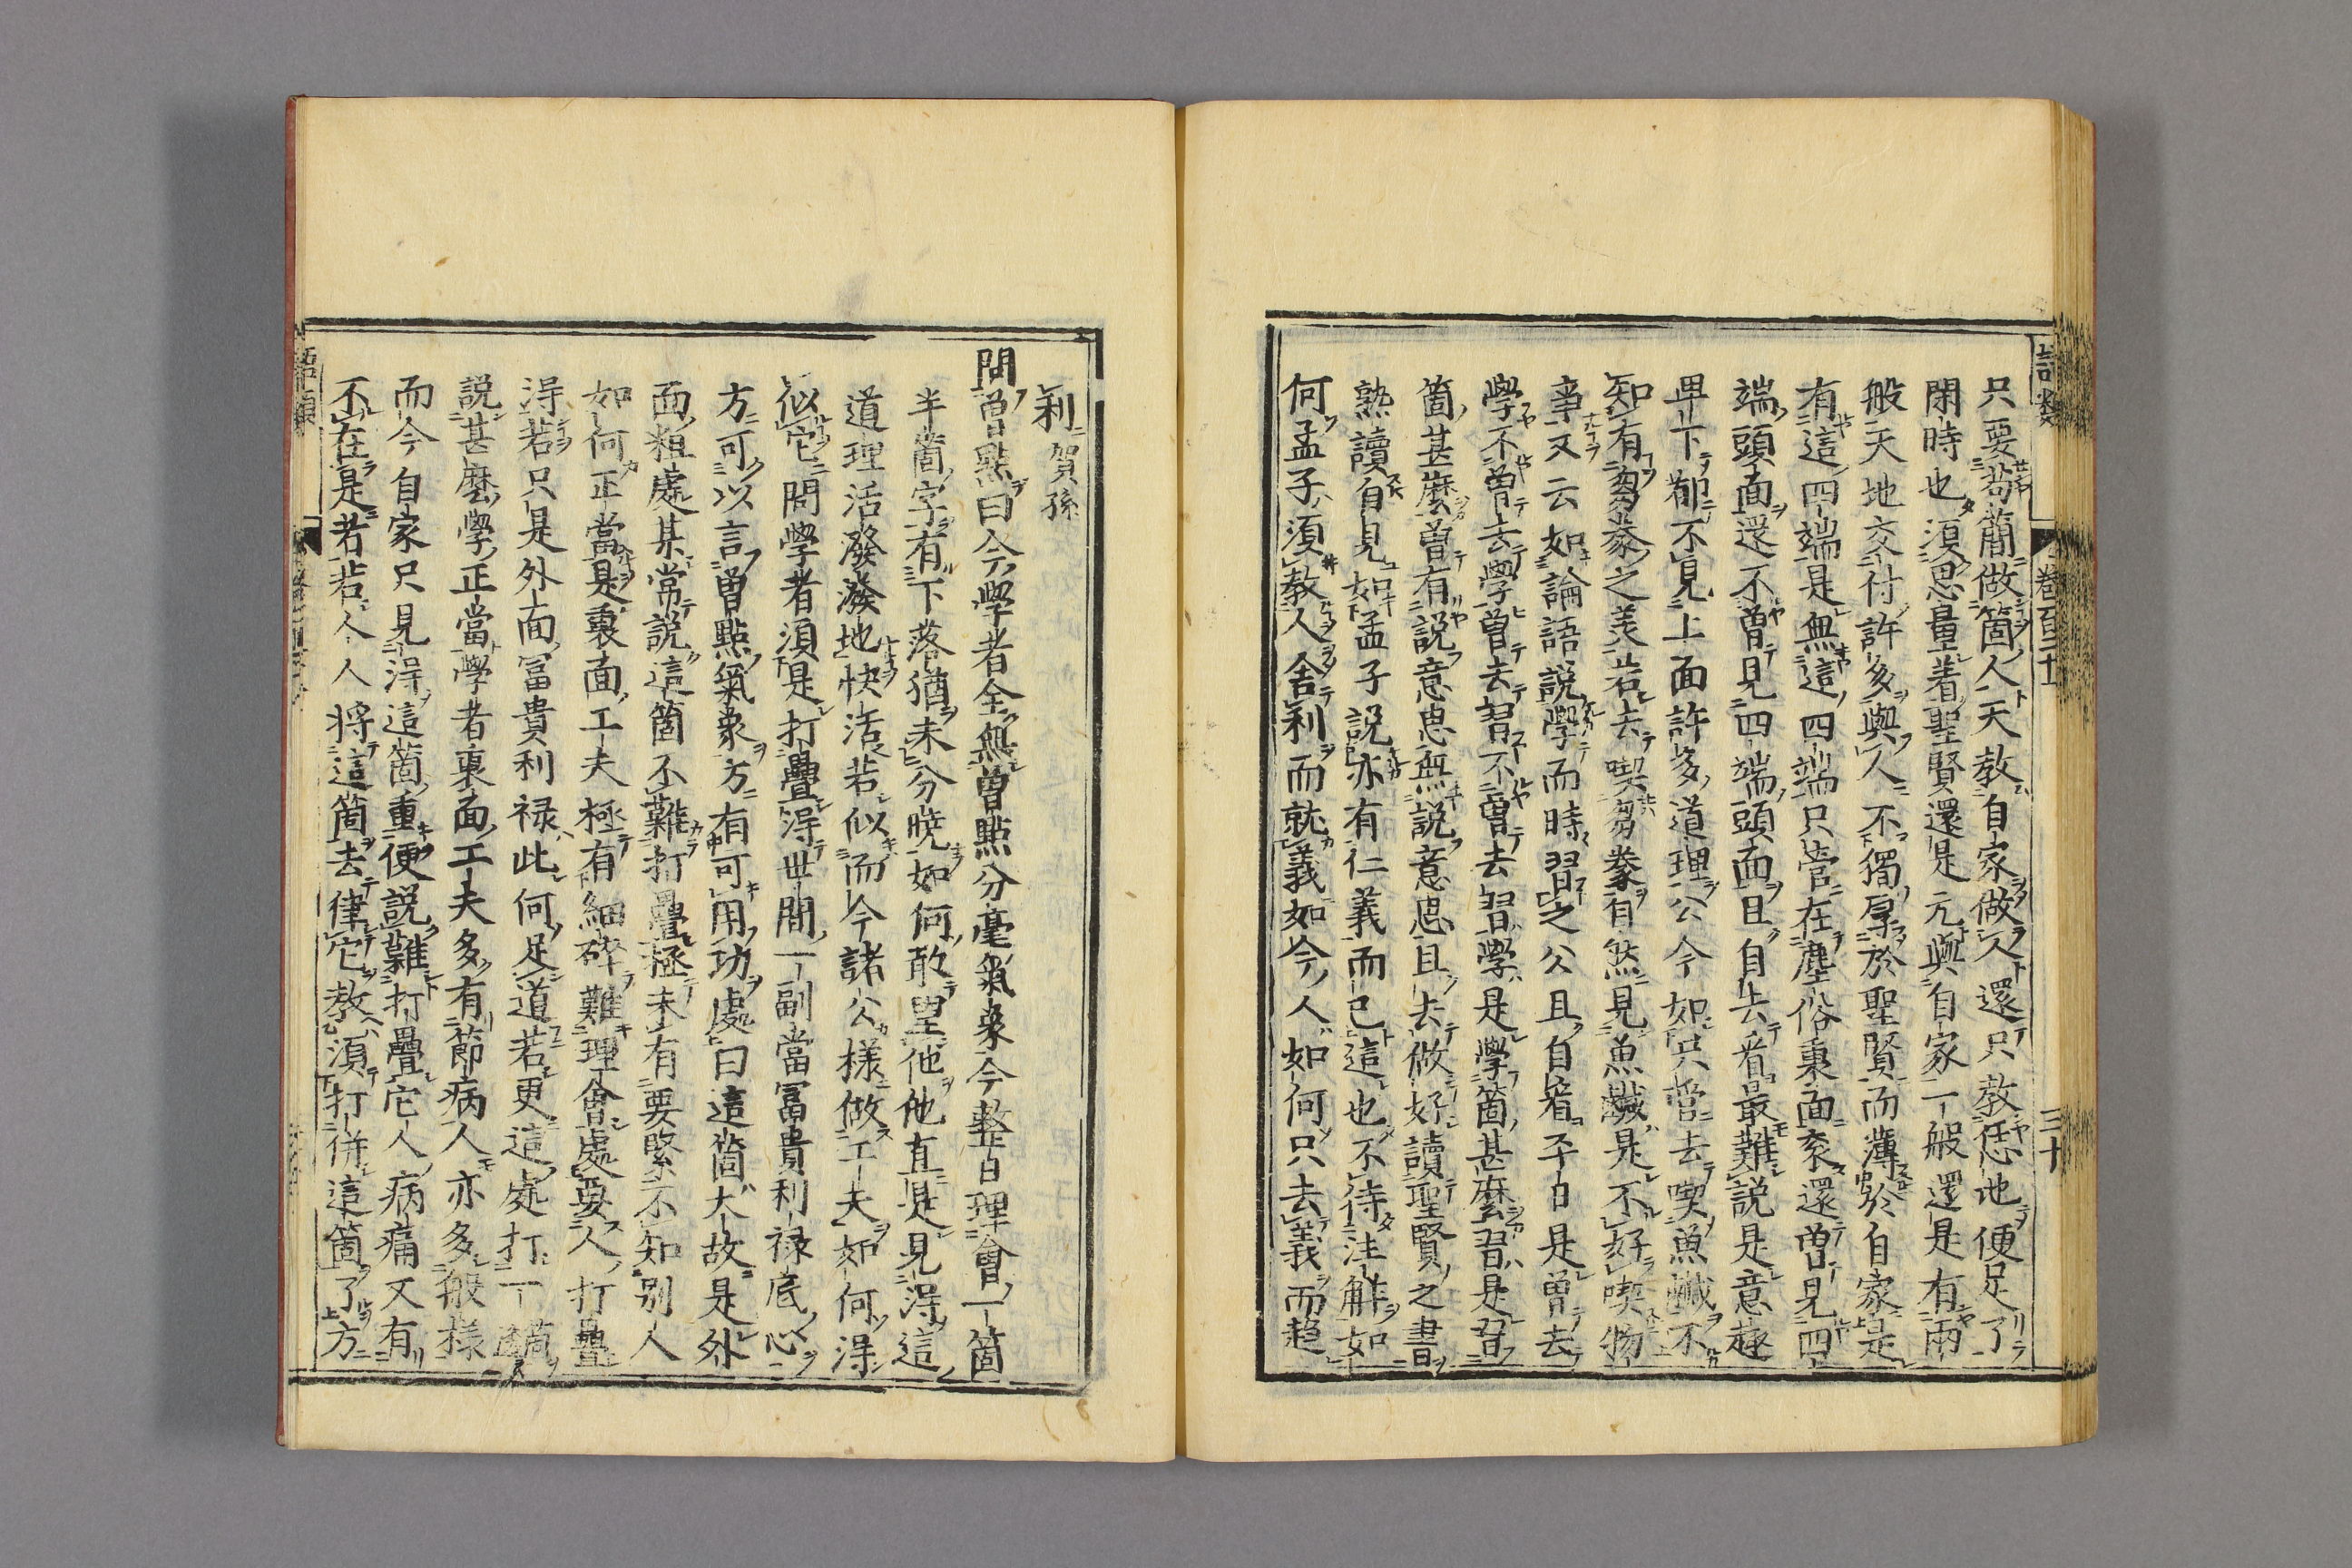 語類
卷百二十
三十
只要苟簡做箇人天教自家做人還只教恁地便足了
閑時也須思量着聖賢還是元與自家一般還是有兩
般天地交付許多與人不獨厚於聖賢而薄於自家是
有這四端是無這四端只管在塵俗裏面衮還曾見四
端頭面還不曾見四端頭面且自去看最難說是意趣
卑下都不見上面許多道理公今如只管去喫魚鹹不
知有芻豢之美若去喫芻豢自然見魚鹹是不好喫物
事又云如論語說學而時習之公且自看平日是曾去
學不曾去學曾去習不曾去習學是學箇甚麽習是習
箇甚麽曾有說意思無說意思且去做好讀聖賢之書
熟讀自見如孟子說亦有仁義而已這也不待注解如
何孟子須教人舍利而就義如今人如何只去義而趨
利賀孫
問曾點曰今學者全無曾點分毫氣象今整日理會一箇
半箇字有下落猶未分曉如何敢望他他直是見得這
道理活潑潑地快活若似而今諸公樣做工夫如何得
似它問學者須是打疊得世間一副當富貴利祿底心
方可以言曾點氣象方有可用功處曰這箇大故是外
面粗處某常說這箇不難打疊極未有要緊不知別人
如何正當是裏面工夫極有細碎難理會處要人打疊
得若只是外面富貴利祿此何足道若更這處打一箇
說甚麽學正當學者裏面工夫多有節病人亦多般樣
而今自家只見得這箇重便說難打疊它人病痛又有
不在是若若人人將這箇去律它教須打併這箇了方